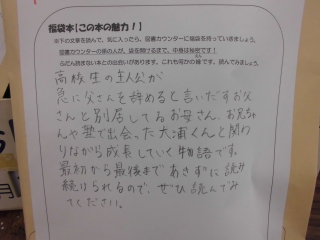 福袋本【この本の魅力!】
※下の文章を読んで、気に入ったら、図書カウンターに福袋を持っていきましょう。
図書カウンターの係の人が、袋を開けるまで、中身は秘密です!
ふだん読まない本との出会いがあります。これも何かの縁です。読んでみましょう。
高校生の主人公が
急に父さんを辞めると言いだすお父
さんと別居してるお母さん、お兄ちゃ
んや塾で出会った大浦くんと関わ
りながら成長していく物語です。
最初から最後まであきずに読み
続けられるので、ぜひ読んでみ
てください。